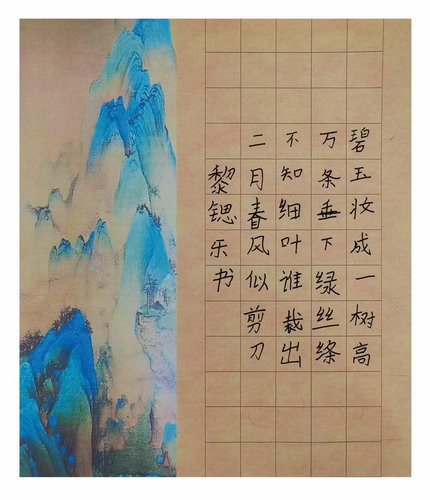 碧玉妆成一树高
万条垂下绿丝绦
不知细叶谁裁出
二月春风似剪刀
黎锶乐书